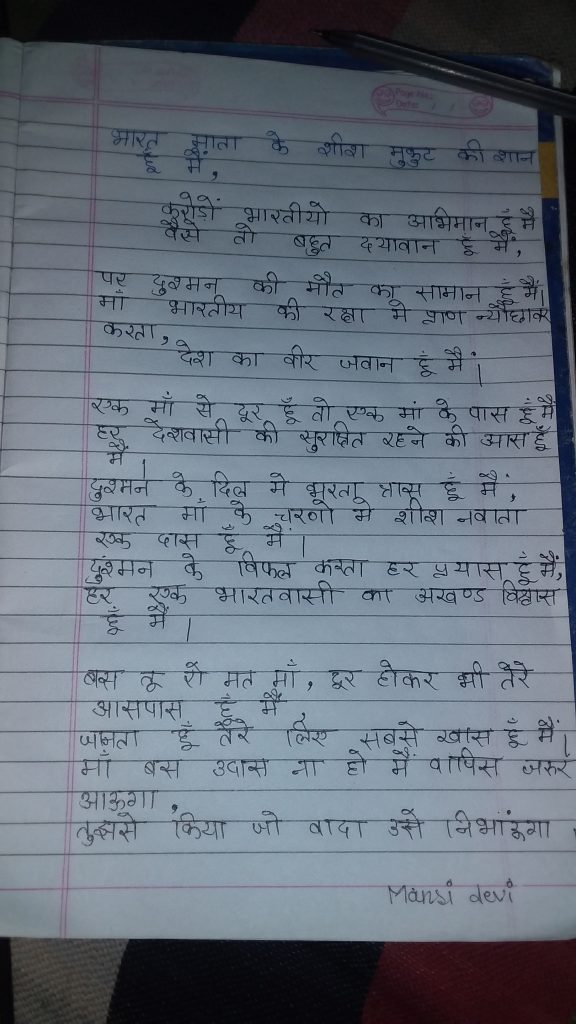 Page No.
Date: / /
भारत माता के शीश मुकुट की शान
हूँ मैं,
करोड़ों भारतीयो का अभिमान हूँ मैं
वैसे तो बहुत दयावान हूँ मैं,
पर दुश्मन की मौत का सामान हूँ मैं।
माँ भारतीय की रक्षा मे प्राण न्यौछावर
करता,
देश का वीर जवान हूँ मैं।
एक माँ से दूर हूँ तो एक मां के पास हूँ मैं
हर देशवासी की सुरक्षित रहने की आस हूँ
मैं।
दुश्मन के दिल मे भरता त्रास हूँ मैं,
भारत माँ के चरणो मे शीश नवाता
एक दास हूँ मैं।
दुश्मन के विफल करता हर प्रयास हूँ मैं,
हर एक भारतवासी का अखण्ड विश्वास
हूँ मैं।
बस तू रो मत माँ, दूर होकर भी तेरे
आसपास हूँ मैं,
जानता हूँ तेरे लिए सबसे खास हूँ मैं।
माँ बस उदास ना हो मैं वापिस जरुर
आऊगा,
तुझसे किया जो वादा उसे निभांऊगा।
Mansi devi